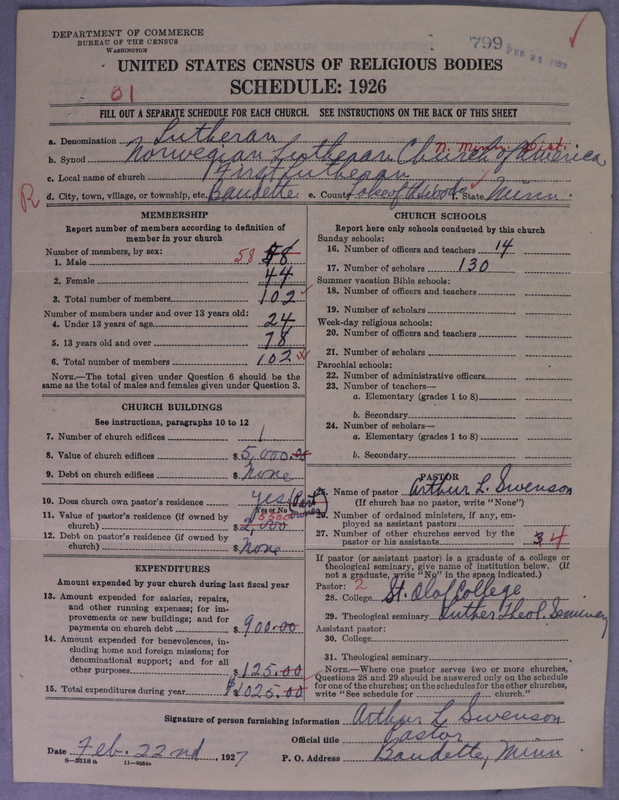 DEPARTMENT OF COMMERCE
BUREAU OF THE CENSUS
WASHINGTON
799
FEB 26 1927
UNITED STATES CENSUS OF RELIGIOUS BODIES
SCHEDULE: 1926
01
FILL OUT A SEPARATE SCHEDULE FOR EACH CHURCH. SEE INSTRUCTIONS ON THE BACK OF THIS SHEET
a. Denomination Lutheran
N. Minn. Dist.
b. Synod Norwegian Lutheran Church of America
c. Local name of church First Lutheran
R
d. City, town, village, or township, etc. Baudette e. County Lake of the Woods f. State Minn.
MEMBERSHIP
Report number of members according to definition of
member in your church
Number of members, by sex:
1. Male 58
2. Female 44
3. Total number of members 102
Number of members under and over 13 years old:
4. Under 13 years of age 24
5. 13 years old and over 78
6. Total number of members 102
NOTE.—The total given under Question 6 should be
same as the total of males and females given under Question 3.
CHURCH BUILDINGS
See instructions, paragraphs 10 to 12
7. Number of church edifices 1
8. Value of church edifices $ 5,000.00
9. Debt on church edifices $ None
10. Does church own pastor's residence yes (Part
Yes or No
owner)
11. Value of pastor's residence (if owned by
church) $ 2,500
12. Debt on pastor's residence (if owned by
church) $ None
EXPENDITURES
Amount expended by your church during last fiscal year
13. Amount expended for salaries, repairs,
and other running expenses; for im-
provements or new buildings; and for
payments on church debt $ 900.00
14. Amount expended for benevolences, in-
cluding home and foreign missions; for
denominational support; and for all
other purposes $ 125.00
15. Total expenditures during year $1025.00
CHURCH SCHOOLS
Report here only schools conducted by this church
Sunday schools:
16. Number of officers and teachers 14
17. Number of scholars 130
Summer vacation Bible schools:
18. Number of officers and teachers
19. Number of scholars
Week-day religious schools:
20. Number of officers and teachers
21. Number of scholars
Parochial schools:
22. Number of administrative officers
23. Number of teachers—
a. Elementary (grades 1 to 8)
b. Secondary
24. Number of scholars—
a. Elementary (grades 1 to 8)
b. Secondary
PASTOR
25. Name of pastor Arthur L. Swenson
(If church has no pastor, write "None")
26. Number of ordained ministers, if any, em-
ployed as assistant pastors
27. Number of other churches served by the
pastor or his assistants 3 4
If pastor (or assistant pastor) is a graduate of a college or
theological seminary, give name of institution below. (If
not a graduate, write "No" in the space indicated.)
Pastor: 2
28. College St. Olaf College
29. Theological seminary Luther Theol. Seminary
Assistant pastor:
30. College
31. Theological seminary
NOTE.—Where one pastor serves two or more churches,
Questions 28 and 29 should be answered only on the schedule
for one of the churches; on the schedules for the other churches,
write "See schedule for church."
Signature of person furnishing information Arthur L. Swenson
Official title Pastor
Date Feb. 22nd, 1927
P. O. Address Baudette, Minn
8-3518 a